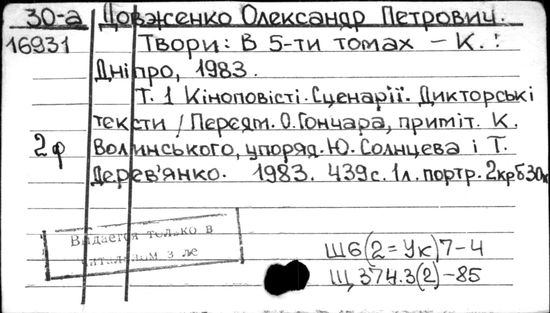 30-а Довженко Олександр Петрович.
16931 Твори: В 5-ти томах – К.:
Дніпро, 1983.
Т. 1 Кіноповісті. Сценарії. Дикторські
тексти / Передм. О. Гончара, приміт. К.
2ф Волинського, упоряд. Ю. Солнцева і Т.
Дерев'янко. 1983. 439с. 1л. портр. 2крб30к
Видается только в
Ш6(2=Ук)7-4
Щ374.3(2)-85